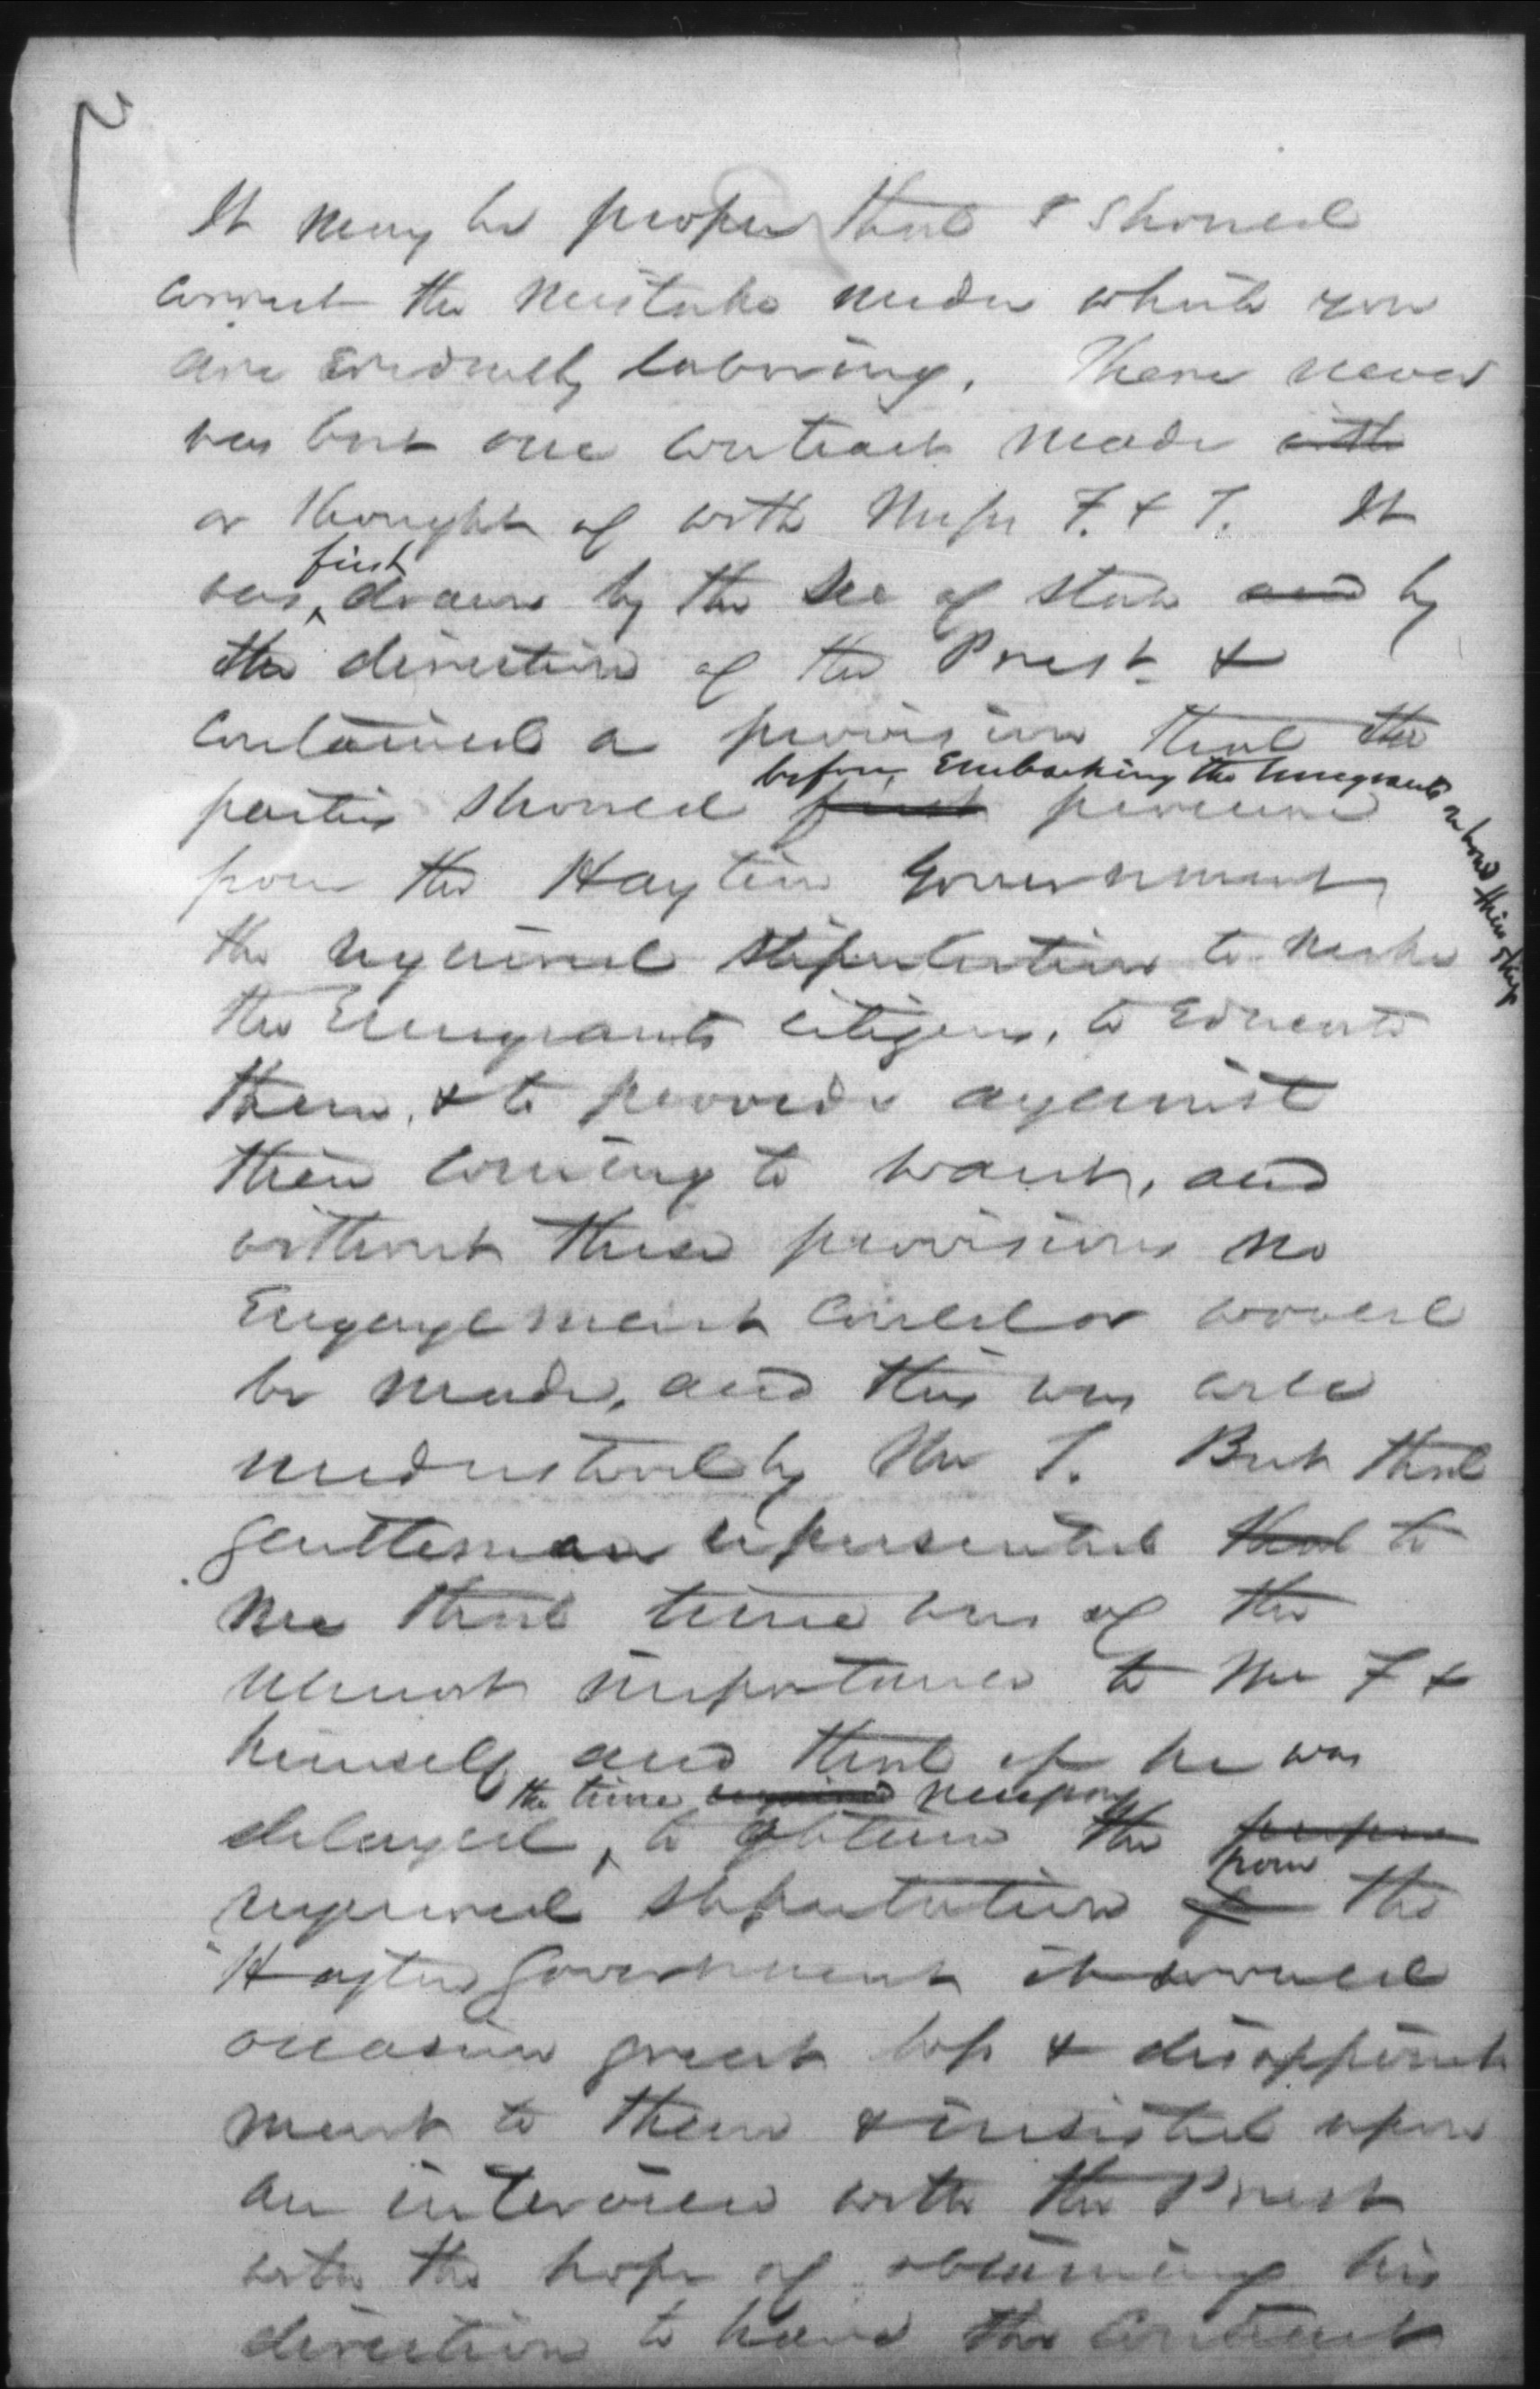 It may be proper that I should
correct the mistake under which you
are evidently laboring. There never
was but one contract made with
or thought of with Messrs F. & T. It
first
was drawn by the Sec of State and by
the direction of the Prest. &
contained a provision that the
before embarking the Emigrants on board their ship
parties should first procure
from the Haytien Government
the required stipulation to make
the Emigrants citizens, to educate
them, & to provide against
their coming to want, and
without these provisions no
Engagement could or would
be made, and this was well
understood by Mr T. But that
gentleman represented that to
me that time was of the
utmost importance to Mr F &
himself and that if he was
the time required necessary
delayed, to obtain the proper
from
required stipulation of the
Haytien Government it would
occasion great loss & disappoint
ment to them & insisted upon
an interview with the Prest
with the hope of obtaining his
direction to have the Contract